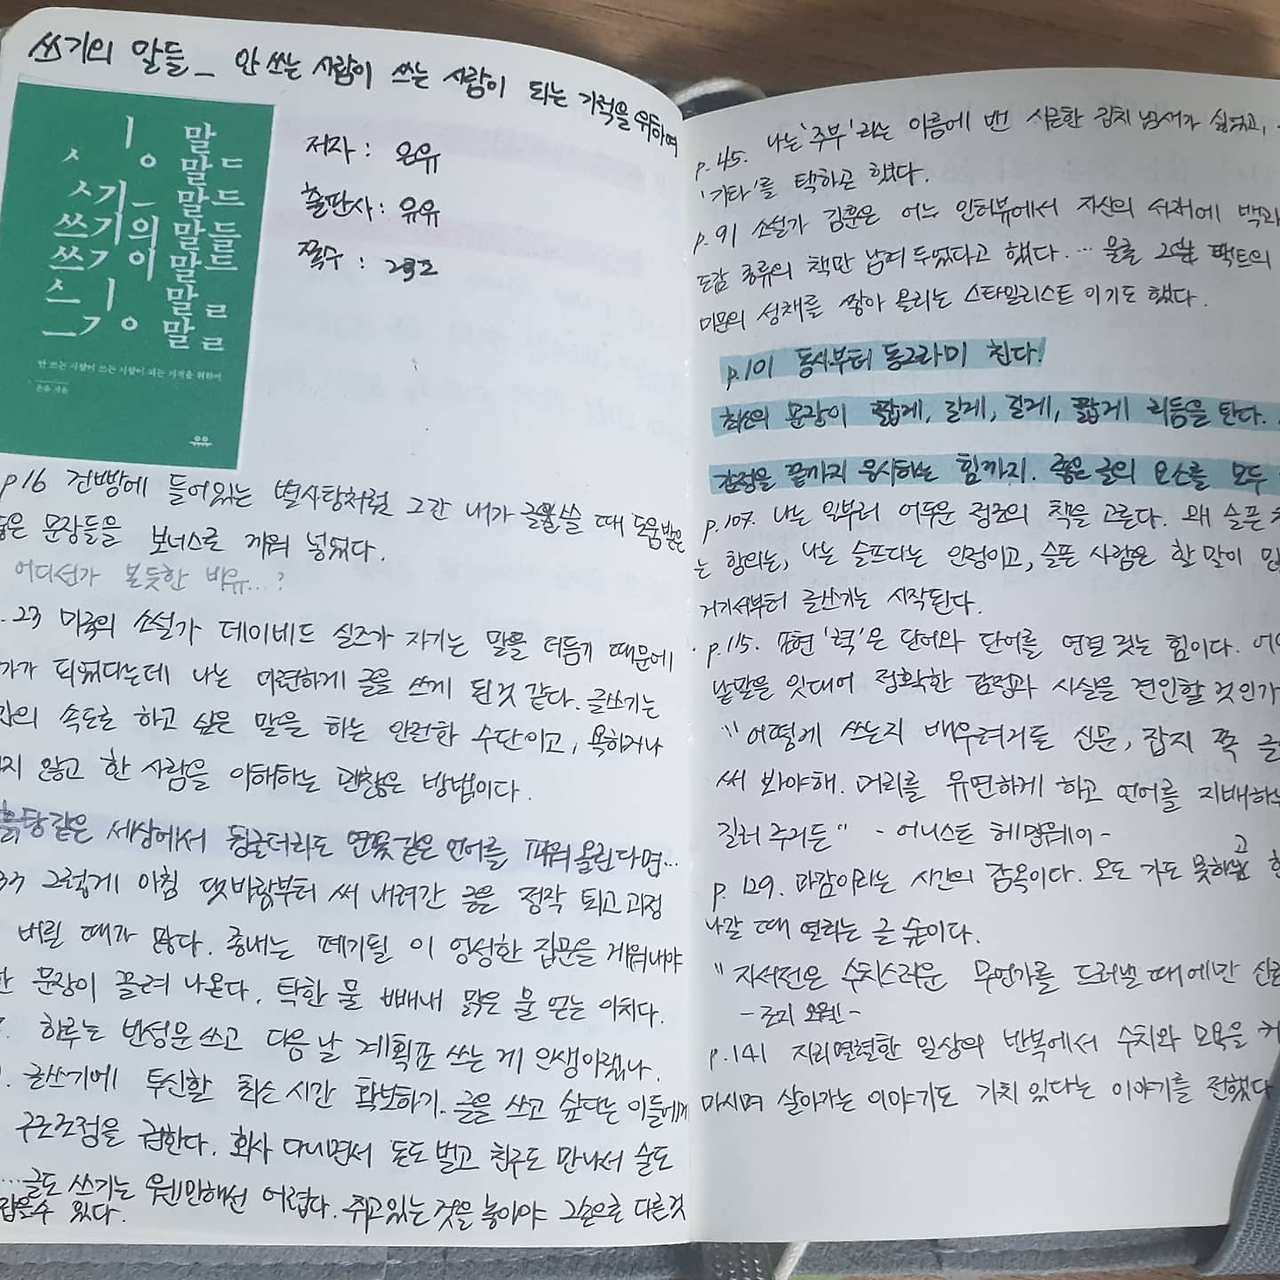 쓰기의 말들_ 안 쓰는 사람이 쓰는 사람이 되는 기적을 위하여
ㅣ 말
ㅅ ㅇ 말ㄷ
ㅅ기_ 말드
쓰기의 말들
쓰기 이 말트
ㅅ ㅣ 말ㄹ
ㅡㄱㅇ 말ㄹ
안 쓰는 사람이 쓰는 사람이 되는 기적을 위하여
은유 지음
유유
저자 : 은유
출판사 : 유유
쪽수 : 232
p16 건빵에 들어있는 별사탕처럼 그간 내가 글을 쓸 때 도움받은
좋은 문장들을 보너스로 끼워 넣었다.
어디선가 본듯한 비유...?
.23 미국의 소설가 데이비드 실즈가 자기는 말을 더듬기 때문에
가가 되었다는데 나는 미련하게 글을 쓰게 된 것 같다. 글쓰기는
만의 속도로 하고 싶은 말을 하는 안전한 수단이고, 욕하거나
지 않고 한 사람을 이해하는 괜찮은 방법이다.
흙탕같은 세상에서 뒹굴더라도 연꽃같은 언어를 피워 올린다면...
33 그렇게 아침 댓바람부터 써 내려간 글은 정작 퇴고 과정
버릴 때가 많다. 종내는 폐기될 이 엉성한 잡문을 게워내야
한 문장이 끌려 나온다. 탁한 물 빼내 맑은 물 얻는 이치다.
하루는 반성문 쓰고 다음 날 계획표 쓰는 게 인생이랬나.
. 글쓰기에 투신할 최소 시간 확보하기. 글을 쓰고 싶다는 이들에게
구조조정을 권한다. 회사 다니면서 돈도 벌고 친구도 만나서 술도
...글도 쓰기는 웬만해선 어렵다. 쥐고있는 것을 놓아야 그 손으로 다른 것
잡을 수 있다.
p.45. 나는 '주부'라는 이름에 밴 시큼한 김치 냄새가 싫었고,
'기타'를 택하곤 했다.
p.91 소설가 김훈은 어느 인터뷰에서 자신의 서재에 백과
도감 종류의 책만 남겨 두었다고 했다. ... 물론 그는 팩트의
미문의 성채를 쌓아 올리는 스타일리스트 이기도 했다.
p.101 동사부터 동그라미 친다.
최선의 문장이 짧게, 길게, 길게, 짧게 리듬을 탄다.
감정을 끝까지 응시하는 힘까지. 좋은 글의 요소를 모두
p.107. 나는 일부러 어두운 정조의 책을 고른다. 왜 슬픈
는 항의는, 나는 슬프다는 인정이고, 슬픈 사람은 할 말이
거기서부터 글쓰기는 시작된다.
p.115. 표현 '력'은 단어와 단어를 연결 짓는 힘이다.
낱말을 잇대어 정확한 감정과 사실을 견인할 것인가
"어떻게 쓰는지 배우려거든 신문, 잡지 쪽 글
써 봐야해. 머리를 유연하게 하고 언어를 지배하는
길러 주거든" - 어니스트 헤밍웨이 -
p. 129. 마감이라는 시간의 감옥이다. 오도 가도 못하고
나갈 때 열리는 글 숲이다.
"자서전은 수치스러운 무언가를 드러낼 때에만
- 조지 오웰 -
p.141 지리멸렬한 일상의 반복에서 수치와 모욕을
마시며 살아가는 이야기도 가치 있다는 이야기를 전했다